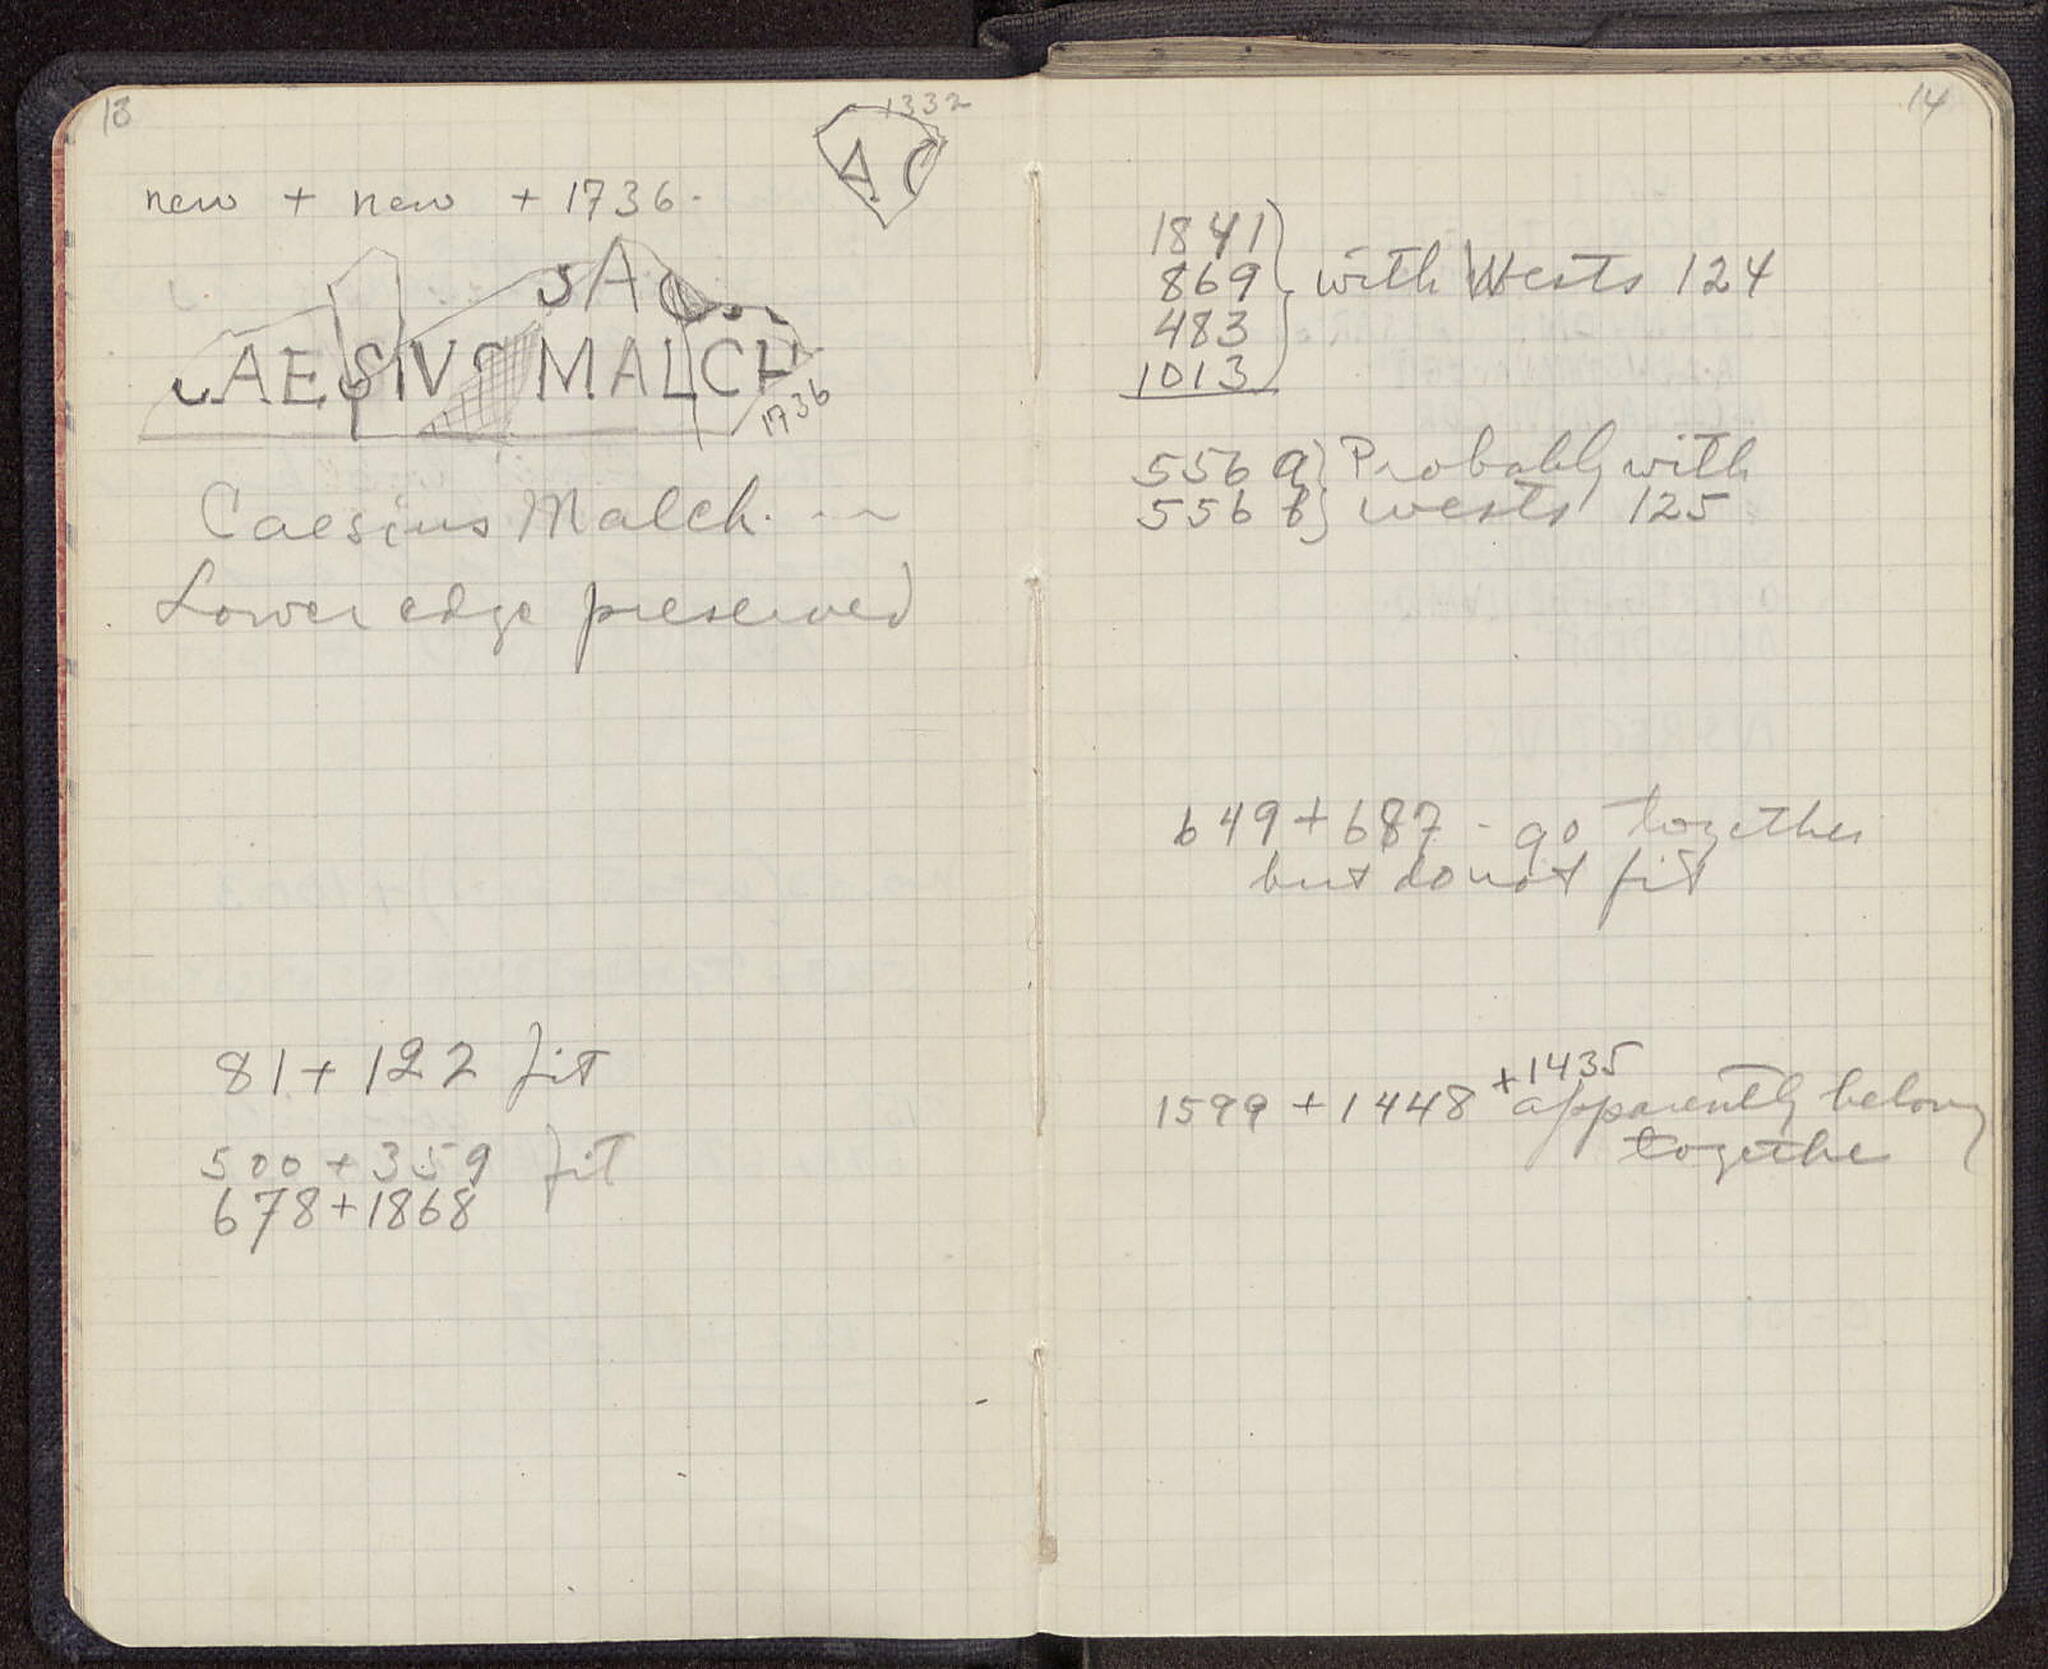 13
1332
A C
new + new + 1736.
SAC
CAESIVS MALCH
1736
Caesius Malch. --
Lower edge preserved
81 + 122 fit
500 + 359 fit
678 + 1868
14
1841
869
483
1013
with Wests 124
556 a
556 b
Probably with
wests' 125
649 + 687 - go together
but do not fit
+ 1435
1599 + 1448 apparently belong
togethe